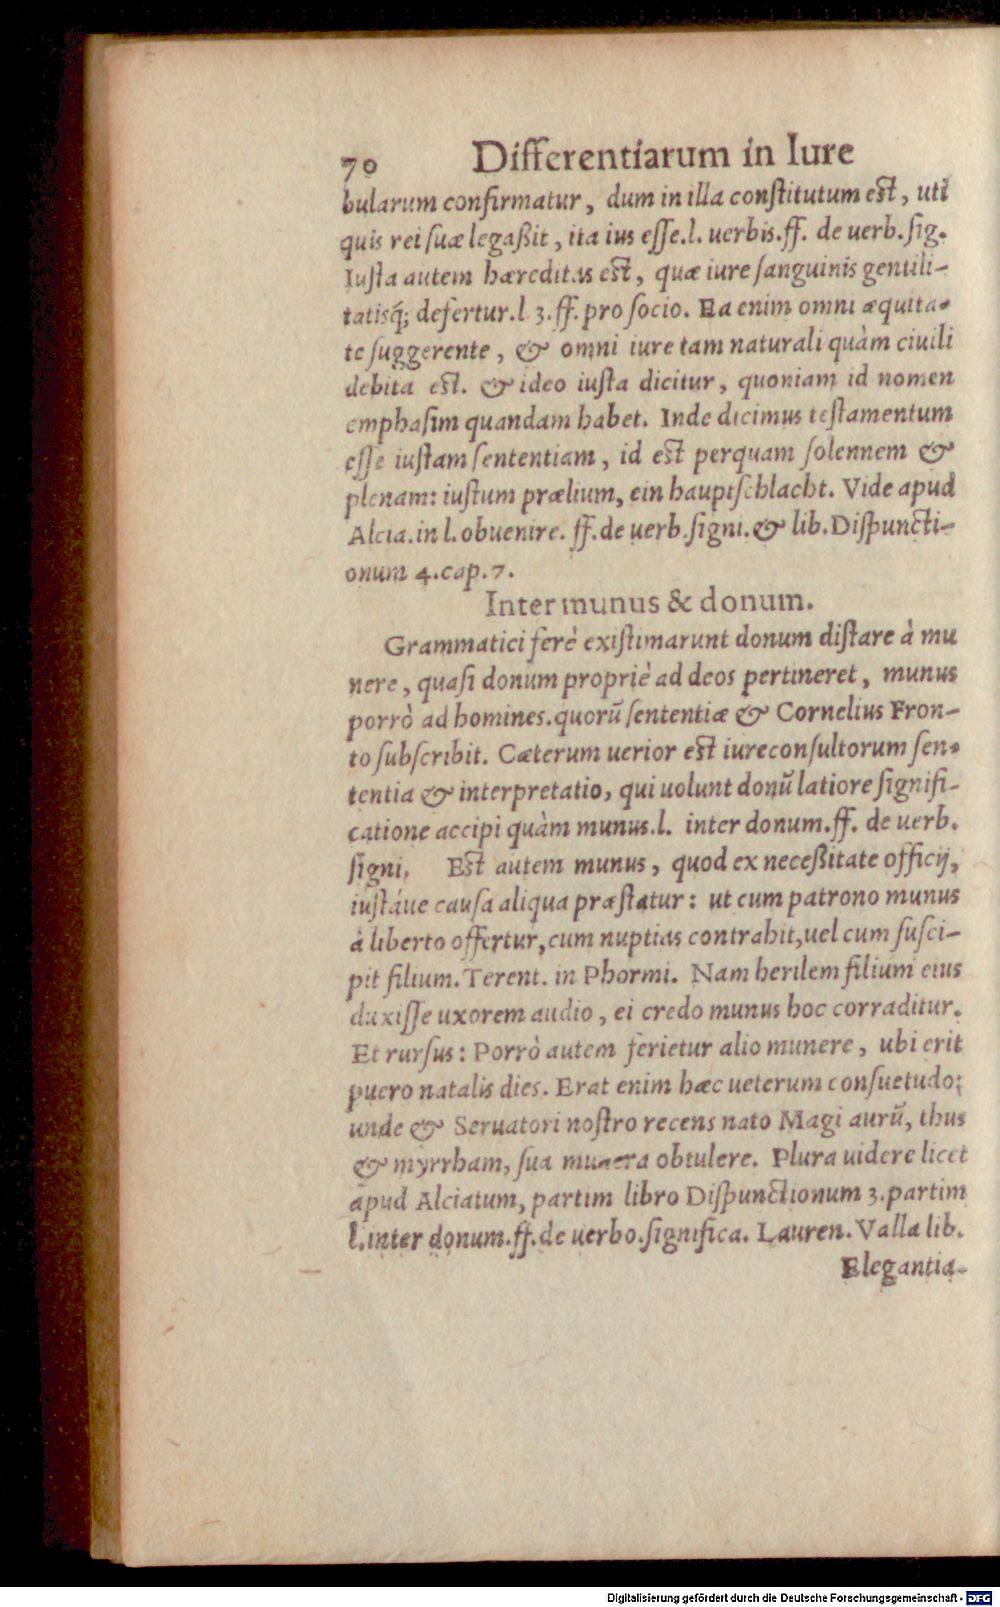 70 Differentiarum in Iure
bularum confirmatur, dum in illa conſtitutum eſt, uti
quis rei ſuæ legaßit, ita ius eſſe. l. uerbis. ff. de uerb. ſig.
Iuſta autem hæreditas eſt, quæ iure ſanguinis gentili-
tatisq́; defertur. l 3. ff. pro ſocio. Ea enim omni æquita-
te ſuggerente, & omni iure tam naturali quàm ciuili
debita eſt. & ideo iuſta dicitur, quoniam id nomen
emphaſim quandam habet. Inde dicimus teſtamentum
eſſe iuſtam ſententiam, id eſt perquam ſolennem &
plenam: iuſtum prælium, ein hauptſchlacht. Vide apud
Alcia. in l. obuenire. ff. de uerb. ſigni. & lib. Diſpuncti-
onum 4. cap. 7.
Inter munus & donum.
Grammatici ferè exiſtimarunt donum diſtare à mu
nere, quaſi donum propriè ad deos pertineret, munus
porrò ad homines. quorũ ſententiæ & Cornelius Fron-
to ſubſcribit. Cæterum uerior eſt iureconſultorum ſen-
tentia & interpretatio, qui uolunt donũ latiore ſignifi-
catione accipi quàm munus. l. inter donum. ff. de uerb.
ſigni. Eſt autem munus, quod ex neceßitate officij,
iuſtáue cauſa aliqua præſtatur: ut cum patrono munus
à liberto offertur, cum nuptias contrahit, uel cum ſuſci-
pit filium. Terent. in Phormi. Nam herilem filium eius
duxiſſe uxorem audio, ei credo munus hoc corraditur.
Et rurſus: Porrò autem ferietur alio munere, ubi erit
puero natalis dies. Erat enim hæc ueterum conſuetudo;
unde & Seruatori noſtro recens nato Magi aurũ, thus
& myrrham, ſua munera obtulere. Plura uidere licet
apud Alciatum, partim libro Diſpunctionum 3. partim
l. inter donum. ff. de uerbo. ſignifica. Lauren. Valla lib.
Elegantia-
Digitalisierung gefördert durch die Deutsche Forschungsgemeinschaft - DFG